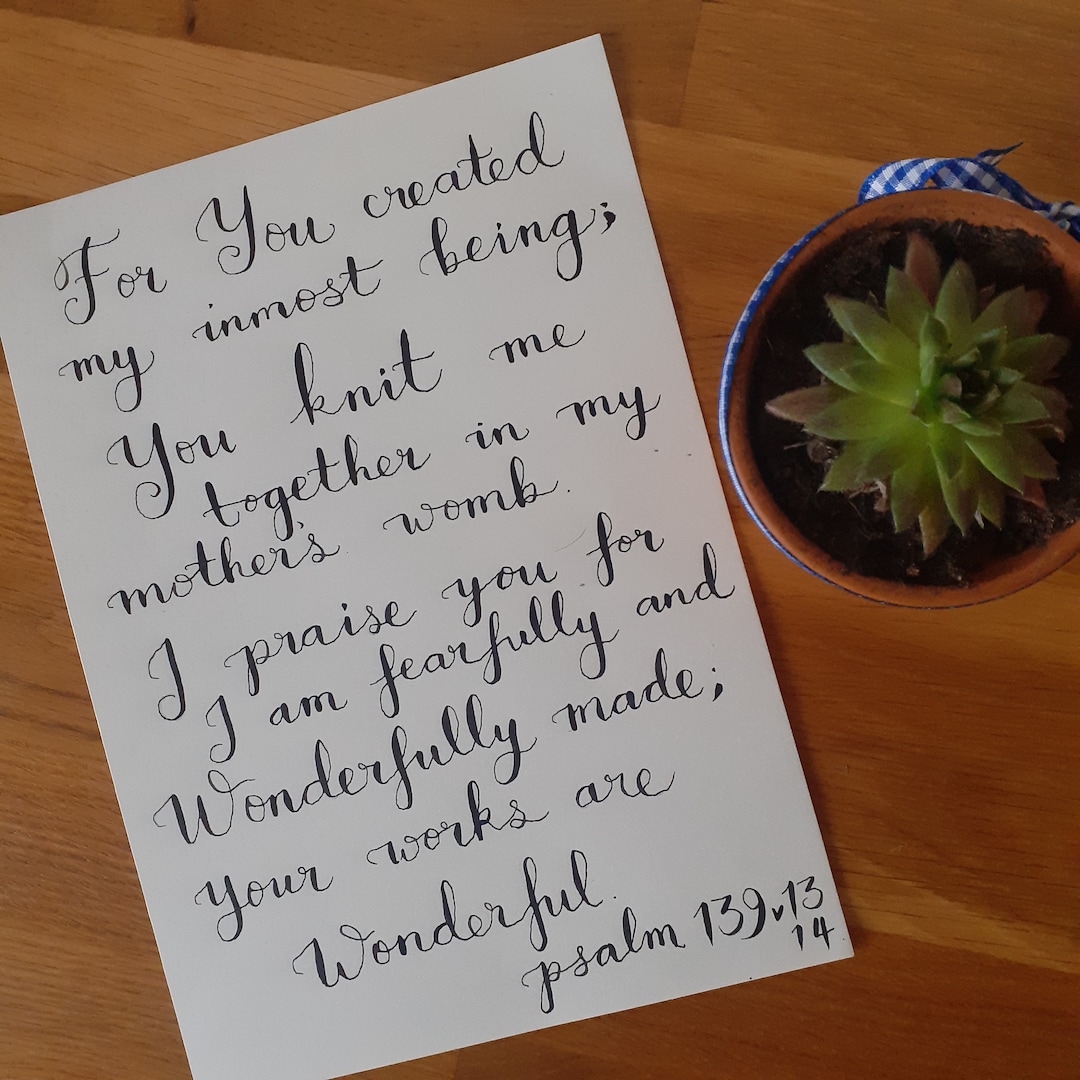 For You created
my inmost being;
You knit me
together in my
mother's womb.
I praise you for
I am fearfully and
Wonderfully made;
your works are
Wonderful.
psalm 139 v 13
14